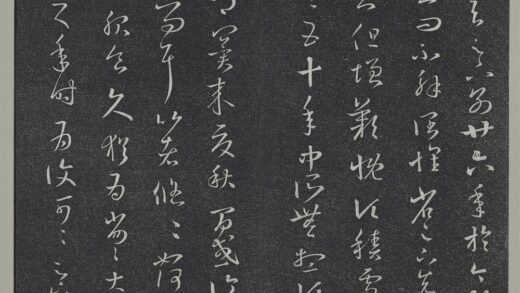 足下別廿六年於今
問不解闊懷省足下先
但增歎慨頃積雪
五十年中所無想頃
冀來夏秋間或復
問耳比者悠悠如何
服食久猶為劣劣大
之年時為復可可足